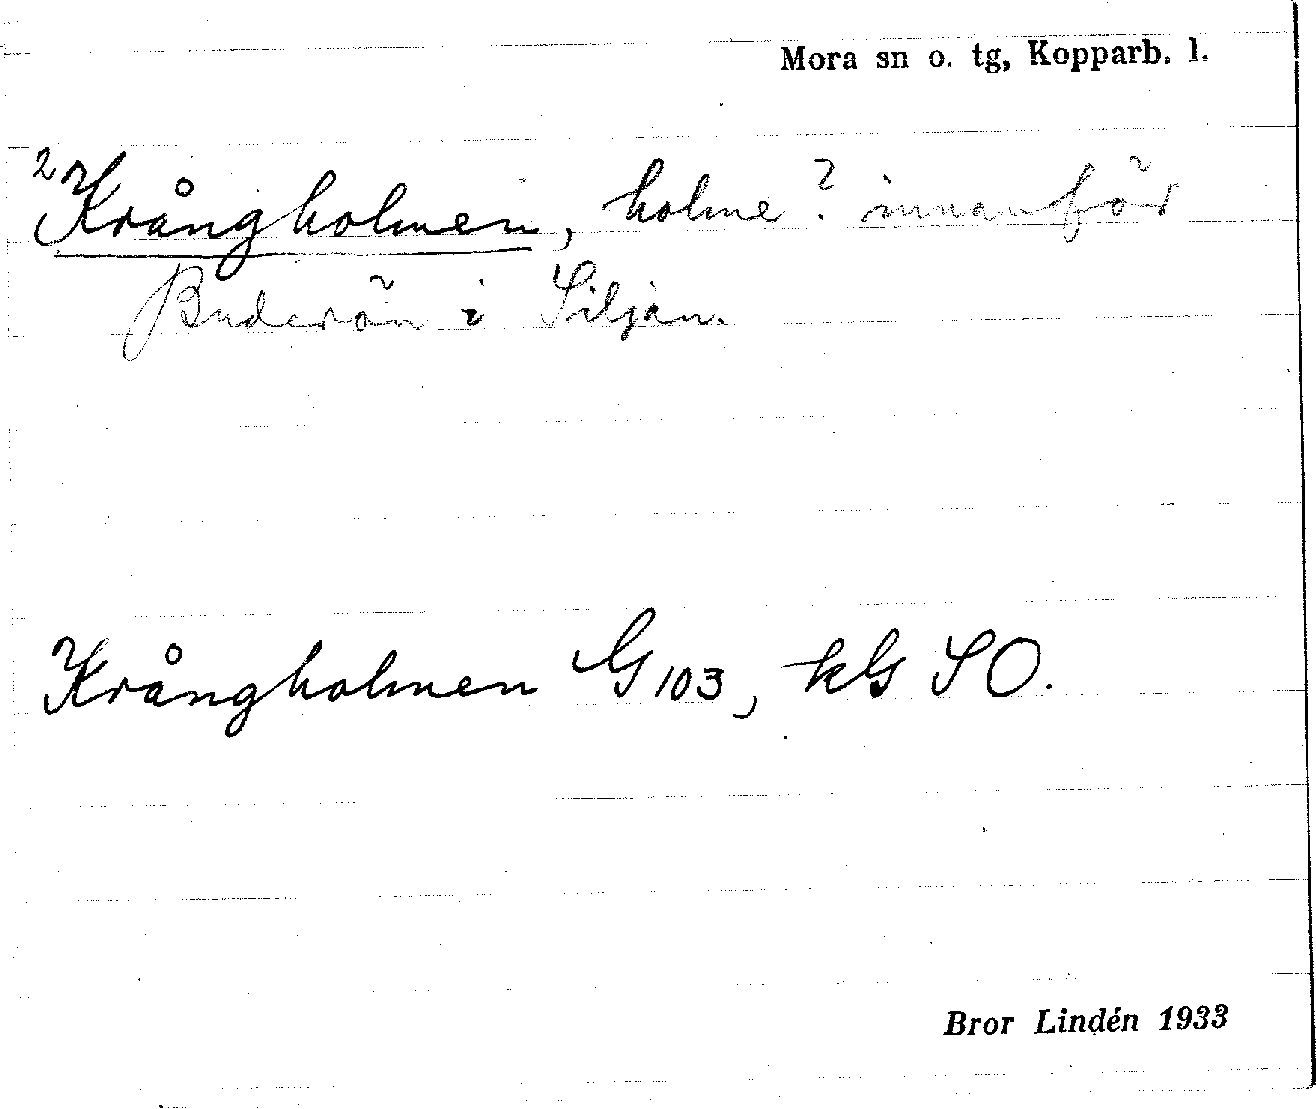 Mora sn o. tg, Kopparb. l.
2 Krångholmen, holme? innanför
Buderön i Siljan.
Krångholmen G 103, kls SO.
Bror Lindén 1933